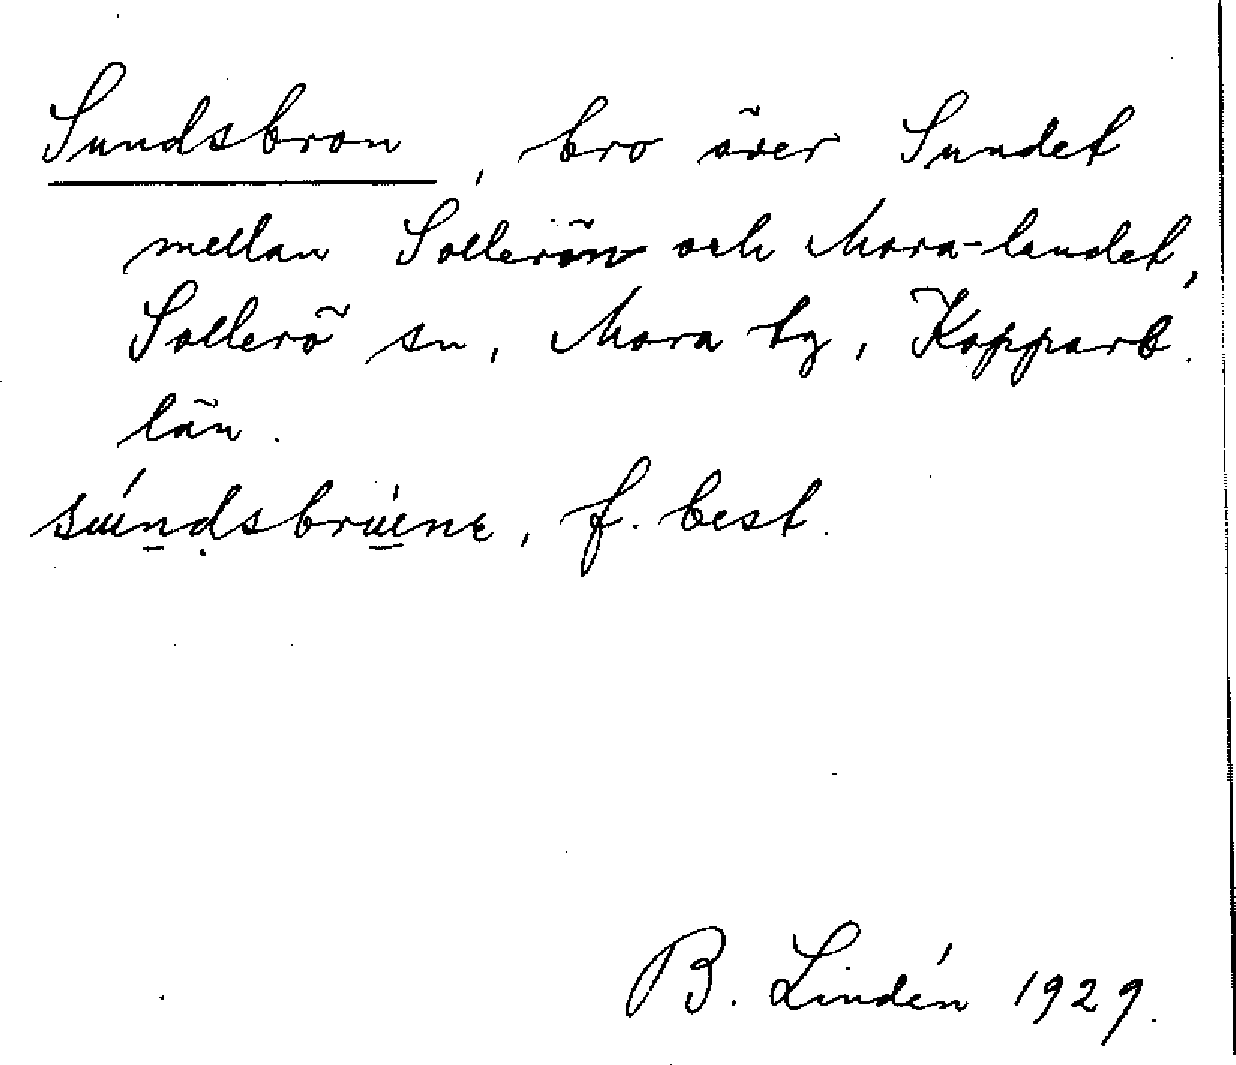 Sundsbron, bro över Sundet
mellan Sollerön och Mora-landet,
Sollerö sn, Mora tg, Kopparb.
län.
súndsbrúene, f. best.
B. Lindén 1929.